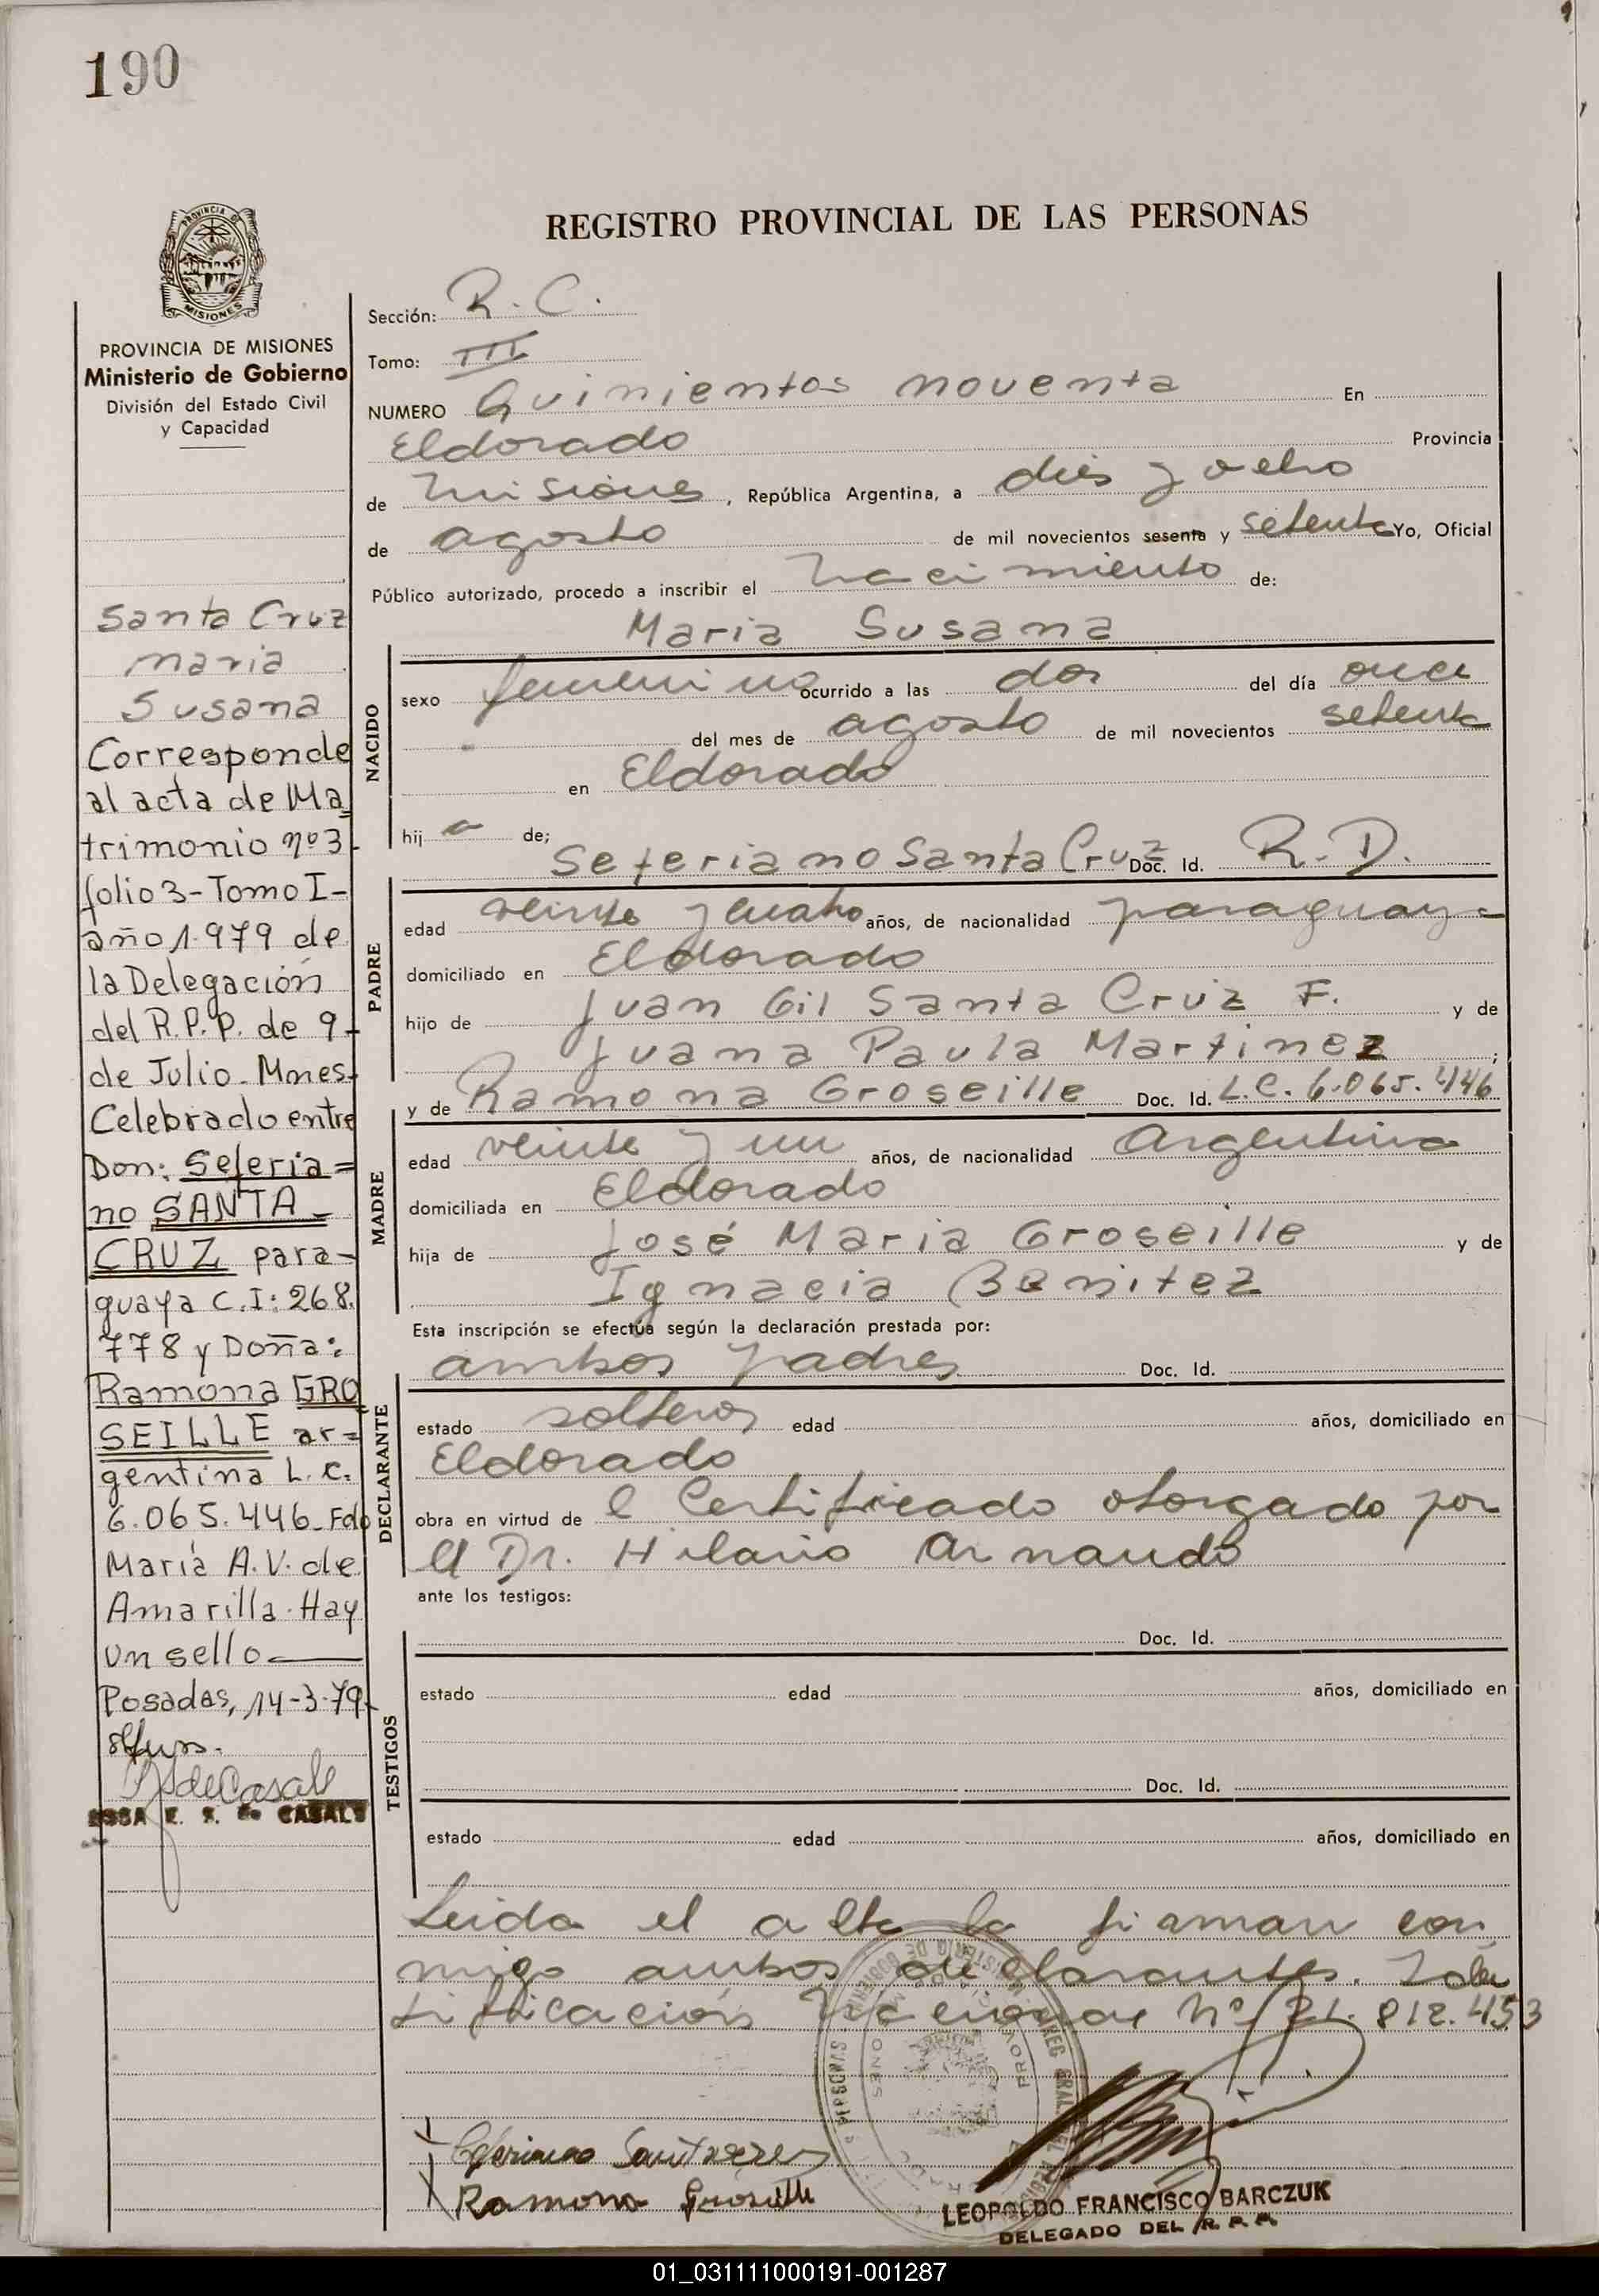 190
REGISTRO PROVINCIAL DE LAS PERSONAS
PROVINCIA DE
MISIONES
PROVINCIA DE MISIONES
Ministerio de Gobierno
División del Estado Civil
y Capacidad
Santa Cruz
Maria
Susana
Corresponde
al acta de Ma
trimonio nº 3-
folio 3-Tomo I-
año 1.979 de
la Delegación
del R.P.P. de 9-
de Julio-Mnes-
Celebrado entre
Don: Seferia=
no SANTA
CRUZ para-
guaya C.I: 268.
778 y Doña:
Ramona GRO
SEILLE ar=
gentina L.C.
6.065.446-Fdo
María A.V. de
Amarilla. Hay
un sello
Posadas, 14-3-79-
deCasals
E. S. de CASALS
Sección: R. C.
Tomo: III
NUMERO Quinientos noventa En
Eldorado Provincia
de Misiones, República Argentina, a dies y ocho
de agosto de mil novecientos sesenta y setenta Yo, Oficial
Público autorizado, procedo a inscribir el nacimiento de:
Maria Susana
NACIDO
sexo femenino ocurrido a las dos del día once
del mes de agosto de mil novecientos setenta
en Eldorado
hij a de;
Seferiano Santa Cruz Doc. Id. R.D.
PADRE
edad veinte y cuatro años, de nacionalidad paraguaya
domiciliado en Eldorado
hijo de Juan Gil Santa Cruz F. y de
Juana Paula Martinez;
y de Ramona Groseille Doc. Id. L.C. 6.065.446
MADRE
edad veinte y un años, de nacionalidad Argentina
domiciliada en Eldorado
hija de José Maria Groseille y de
Ignacia Benitez
Esta inscripción se efectúa según la declaración prestada por:
ambos padres Doc. Id.
DECLARANTE
estado solteros edad años, domiciliado en
Eldorado
obra en virtud de l Certificado otorgado por
el Dr. Hilario Arnaudo
ante los testigos:
Doc. Id.
TESTIGOS
estado edad años, domiciliado en
Doc. Id.
estado edad años, domiciliado en
Leida el acta la firman con
migo ambos declarantes. Iden
tificación Nº 21.812.453
Ramona Groseille
LEOPOLDO FRANCISCO BARCZUK
DELEGADO DEL R. P. P.
01_031111000191-001287